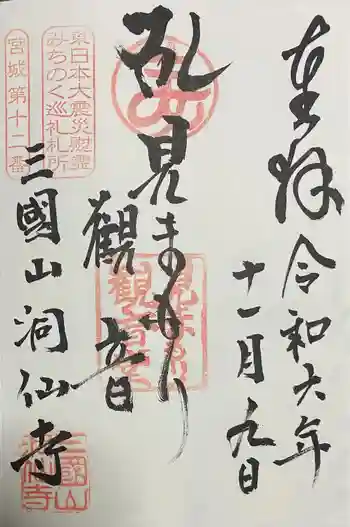 奉拝
令和六年
十一月九日
見まもり
観音
三國山洞仙寺
東日本大震災慰霊
みちのく巡礼札所
宮城第十二番
見まもり
観音堂
三國山
洞仙寺